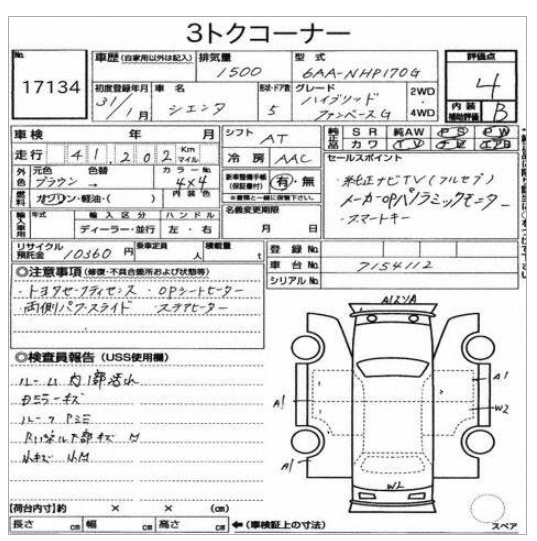 3トクコーナー
No. 17134
車歴(自家用以外は記入) 排気量 1500 型式 6AA-NHP170G
評価点 4
初度登録年月 31/1月 車名 シエンタ 形状・ドア数 5 グレード ハイブリッド ファンベースG 2WD・4WD
内装補助評価 B
車検 年 月 シフト AT
純正品 SR 純AW PS PW
カワ TV
走行 41,202 Km マイル 冷房 AAC
セールスポイント
外色 元色 ブラウン → 色替 カラーNo. 4X4 内装色
新車整備手帳(保証書付) 有・無
・純正ナビTV(フルセグ)
・メーカーOPパノラミックモニター
・スマートキー
燃料 ガソリン・軽油・( )
名義変更期限 月 日
輸入車用 年式 輸入区分 ディーラー・並行 ハンドル 左・右
リサイクル預託金 10360円 乗車定員 人 積載量 t
登録No.
車台No. 7154112
シリアルNo.
◎注意事項(修復・不具合箇所および状態等)
・トヨタセーフティセンス ・OPシートヒーター
・両側パワースライド ステアヒーター
◎検査員報告(USS使用欄)
ルーム内1部汚れ
ルーフ
小キズ 小M
A1
W2
A1
A1
W2
【荷台内寸】約 × × (cm)
長さ cm 幅 cm 高さ cm ←(車検証上の寸法)
スペア